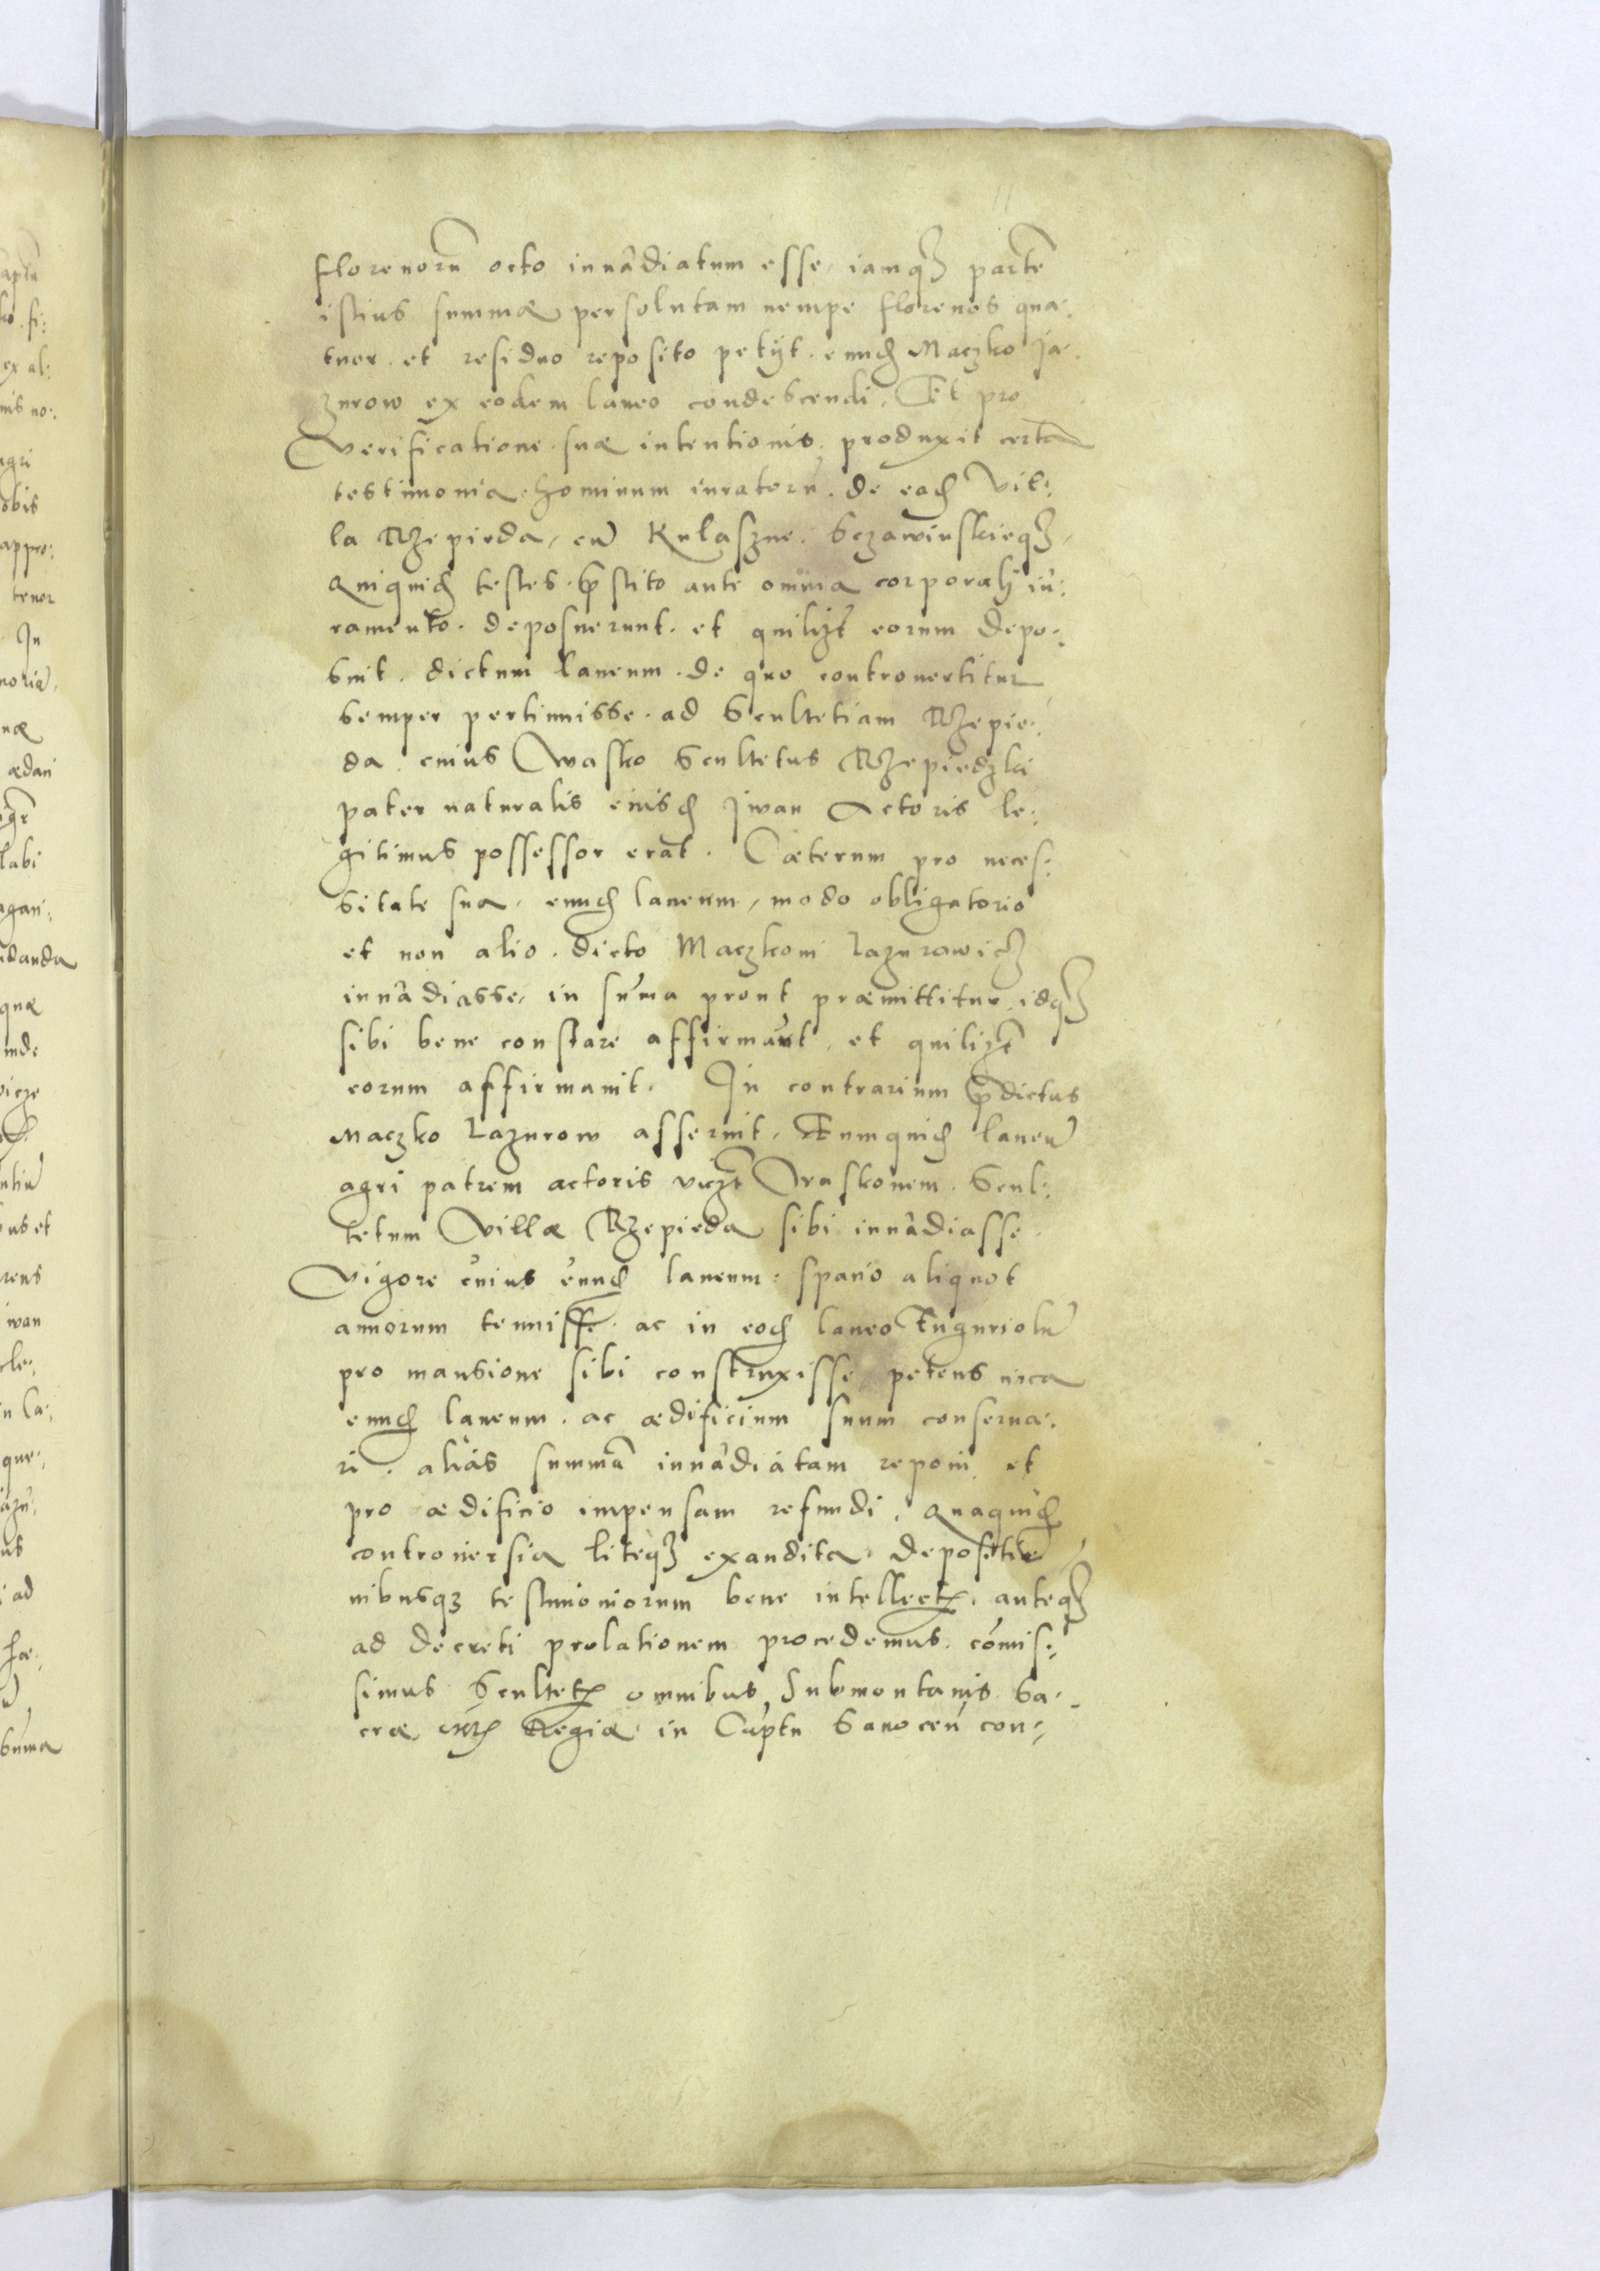 florenorũ octo inuãdiatum esse, iamqȝ partẽ
istius summæ persolutam nempe florenos qua-
tuor. et residuo reposito petijt. eundẽ Maczko Ja-
zurow ex eodem laneo condescendi. Et pro
Verificatione suæ intentionis, produxit certa
testimonia hominum iuratorũ. de eadẽ Vil-
la Rzepieda, cũ Kulaszne. Sczawinskieqȝ,
Quiquidẽ testes p̃stito ante omnia corporali iu-
ramento. deposuerunt. et quilibt̃ eorum depo-
suit. dictum laneum. de quo controuertitur
semper pertinuisse. ad Scultetiam Rzepie-
da. cuius Wasko Scultetus Rzepiedzki
pater naturalis eiusdẽ Jwan Actoris le-
gitimus possessor erat. Cæterum pro neces-
sitate sua, eundẽ laneum, modo obligatorio
et non alio. dicto Maczkoni Lazurowicz
inuãdiasse, in sũma prout præmittitur. idqȝ
sibi bene constare affirmãrt, et quilibt̃
eorum affirmauit. In contrarium p̃dictus
Maczko Lazurow asseruit, Eumquidẽ laneũ
agri patrem actoris vidzt Wraskonem. Scul-
tetum Villæ Rzepieda sibi inuãdiasse
Vigore cuius eundẽ laneum. spatio aliquot
annorum tenuisse. ac in eodẽ laneo Tuguriolũ
pro mansione sibi construxisse, petens circa
eundẽ laneum. ac ædificium suum conserua-
ri. aliàs summã inuãdiatam reponi et
pro ædificio impensam refundi. Quaquidẽ
controuersia liteqȝ exaudita. depositio-
nibusqȝ testimoniorum bene intellectis. anteqȝ
ad decreti prolationem procedemus. cõmis-
simus Scultetis omnibus Submontanis Sa-
cræ Mtis Regiæ in Cap̃tu Sanoceñ con-